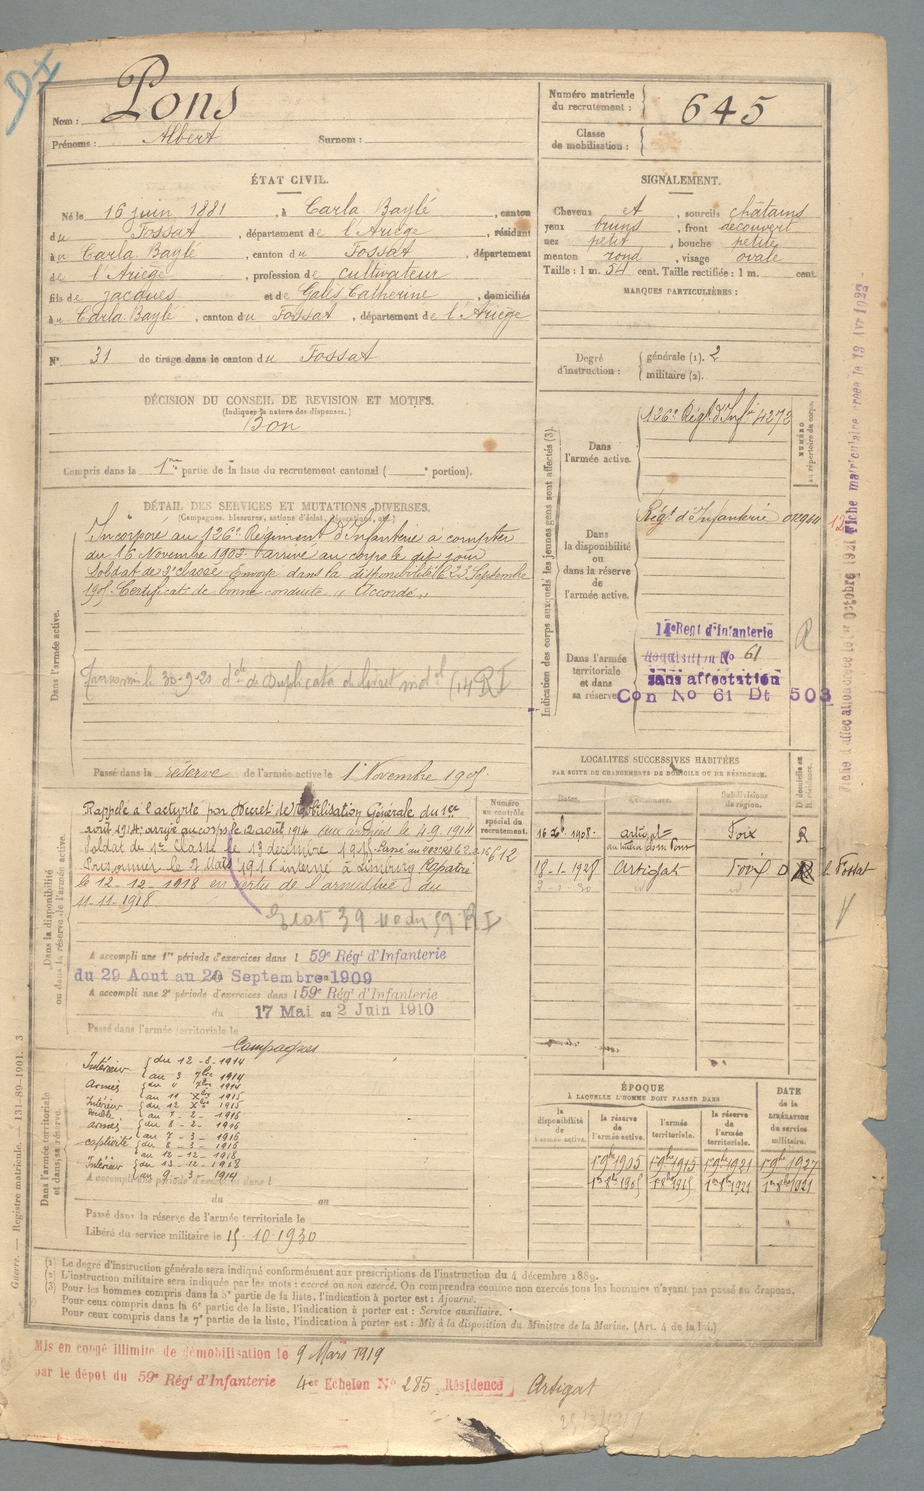 DI
Nom : Pons
Prénoms : Albert Surnom :
Numéro matricule du recrutement : 645
Classe de mobilisation :
ÉTAT CIVIL.
Né le 16 juin 1881, à Carla Baylé, canton
du Fossat, département de l'Ariège, résidant
à Carla Baylé, canton du Fossat, département
de l'Ariège, profession de cultivateur
fils de Jacques et de Galès Catherine, domiciliés
à Carla Baylé, canton du Fossat, département de l'Ariège
N° 31 de tirage dans le canton du Fossat
SIGNALEMENT.
Cheveux et, sourcils châtains
yeux bruns, front découvert
nez petit, bouche petite
menton rond, visage ovale
Taille : 1 m. 54 cent. Taille rectifiée : 1 m. cent.
MARQUES PARTICULIÈRES :
Degré d'instruction : générale (1). 2
militaire (2).
DÉCISION DU CONSEIL DE REVISION ET MOTIFS.
(Indiquer la nature des dispenses.)
Bon
Compris dans la 1re partie de la liste du recrutement cantonal ( e portion).
DÉTAIL DES SERVICES ET MUTATIONS DIVERSES.
(Campagnes, blessures, actions d'éclat, décorations, etc.)
Dans l'armée active.
Incorporé au 126e Régiment d'Infanterie à compter
du 16 Novembre 1902 arrivé au corps le dit jour
Soldat de 2e classe Envoyé dans la disponibilité le 23 Septembre
1905 Certificat de bonne conduite "Accordé"
le 30-9-20 de Duplicata du livret mel (14 RI
Passé dans la réserve de l'armée active le 1 Novembre 1905
Indication des corps auxquels les jeunes gens sont affectés (3).
Dans l'armée active.
126e Régt d'Infie 4272
NUMÉRO au répertoire du corps.
Dans la disponibilité ou dans la réserve de l'armée active.
Régt d'Infanterie
Dans l'armée territoriale et dans sa réserve.
14e Regt d'infanterie
Réquisition No 61
sans affectation
Con No 61 Dt 503
R
Fiche matriculaire créée le 13 Avr 1922
Dans la disponibilité ou dans la réserve de l'armée active.
Numéro au contrôle spécial du recrutement.
1612
Rappelé à l'activité par Décret de Mobilisation Générale du 1er
août 1914, arrivé au corps le 12 août 1914 aux armées le 4.9.1914
Soldat de 1re Classe le 12 décembre 1915
Prisonnier le 7 Mars 1916 interné à Limburg Rapatrié
le 12-12-1918 en vertu de l'armistice du
11-11-1918
A accompli une 1re période d'exercices dans l 59e Régt d'Infanterie
du 29 Aout au 20 Septembre 1909
A accompli une 2e période d'exercices dans l 59e Régt d'Infanterie
du 17 Mai au 2 Juin 1910
Passé dans l'armée territoriale le
LOCALITÉS SUCCESSIVES HABITÉES
PAR SUITE DE CHANGEMENTS DE DOMICILE OU DE RÉSIDENCE.
Dates. Communes. Subdivisions de région. D domicile ou R résidence.
1908. Foix R
18-1-1928 Artigat Foix D R c. Fossat
Dans l'armée territoriale et dans sa réserve.
Campagnes
Intérieur du 12-8-1914
au 3 7bre 1914
Armées du 4 7bre 1914
au 11 Xbre 1915
Intérieur du 12 Xbre 1915
au 7-2-1916
armées du 8-2-1916
au 7-3-1916
captivité du 8-3-1916
au 12-12-1918
Intérieur du 13-12-1918
au 9-3-1919
A accompli une période d'exercices dans l
du au
Passé dans la réserve de l'armée territoriale le
Libéré du service militaire le 15.10.1930
ÉPOQUE
À LAQUELLE L'HOMME DOIT PASSER DANS
la disponibilité de l'armée active. la réserve de l'armée active. l'armée territoriale. la réserve de l'armée territoriale. DATE de la LIBÉRATION du service militaire.
1er 9bre 1905 1er 9bre 1915 1er 9bre 1921 1er 9bre 1927
Guerre. — Registre matricule. — 131-89-1901. 3
(1) Le degré d'instruction générale sera indiqué conformément aux prescriptions de l'instruction du 4 décembre 1889.
(2) L'instruction militaire sera indiquée par les mots : exercé ou non exercé. On comprendra comme non exercés tous les hommes n'ayant pas passé au drapeau.
(3) Pour les hommes compris dans la 5e partie de la liste, l'indication à porter est : Ajourné.
Pour ceux compris dans la 6e partie de la liste, l'indication à porter est : Service auxiliaire.
Pour ceux compris dans la 7e partie de la liste, l'indication à porter est : Mis à la disposition du Ministre de la Marine. (Art. 4 de la loi.)
Mis en congé illimité de démobilisation le 9 Mars 1919
par le dépot du 59e Régt d'Infanterie 4e Echelon No 285 Résidence Artigat